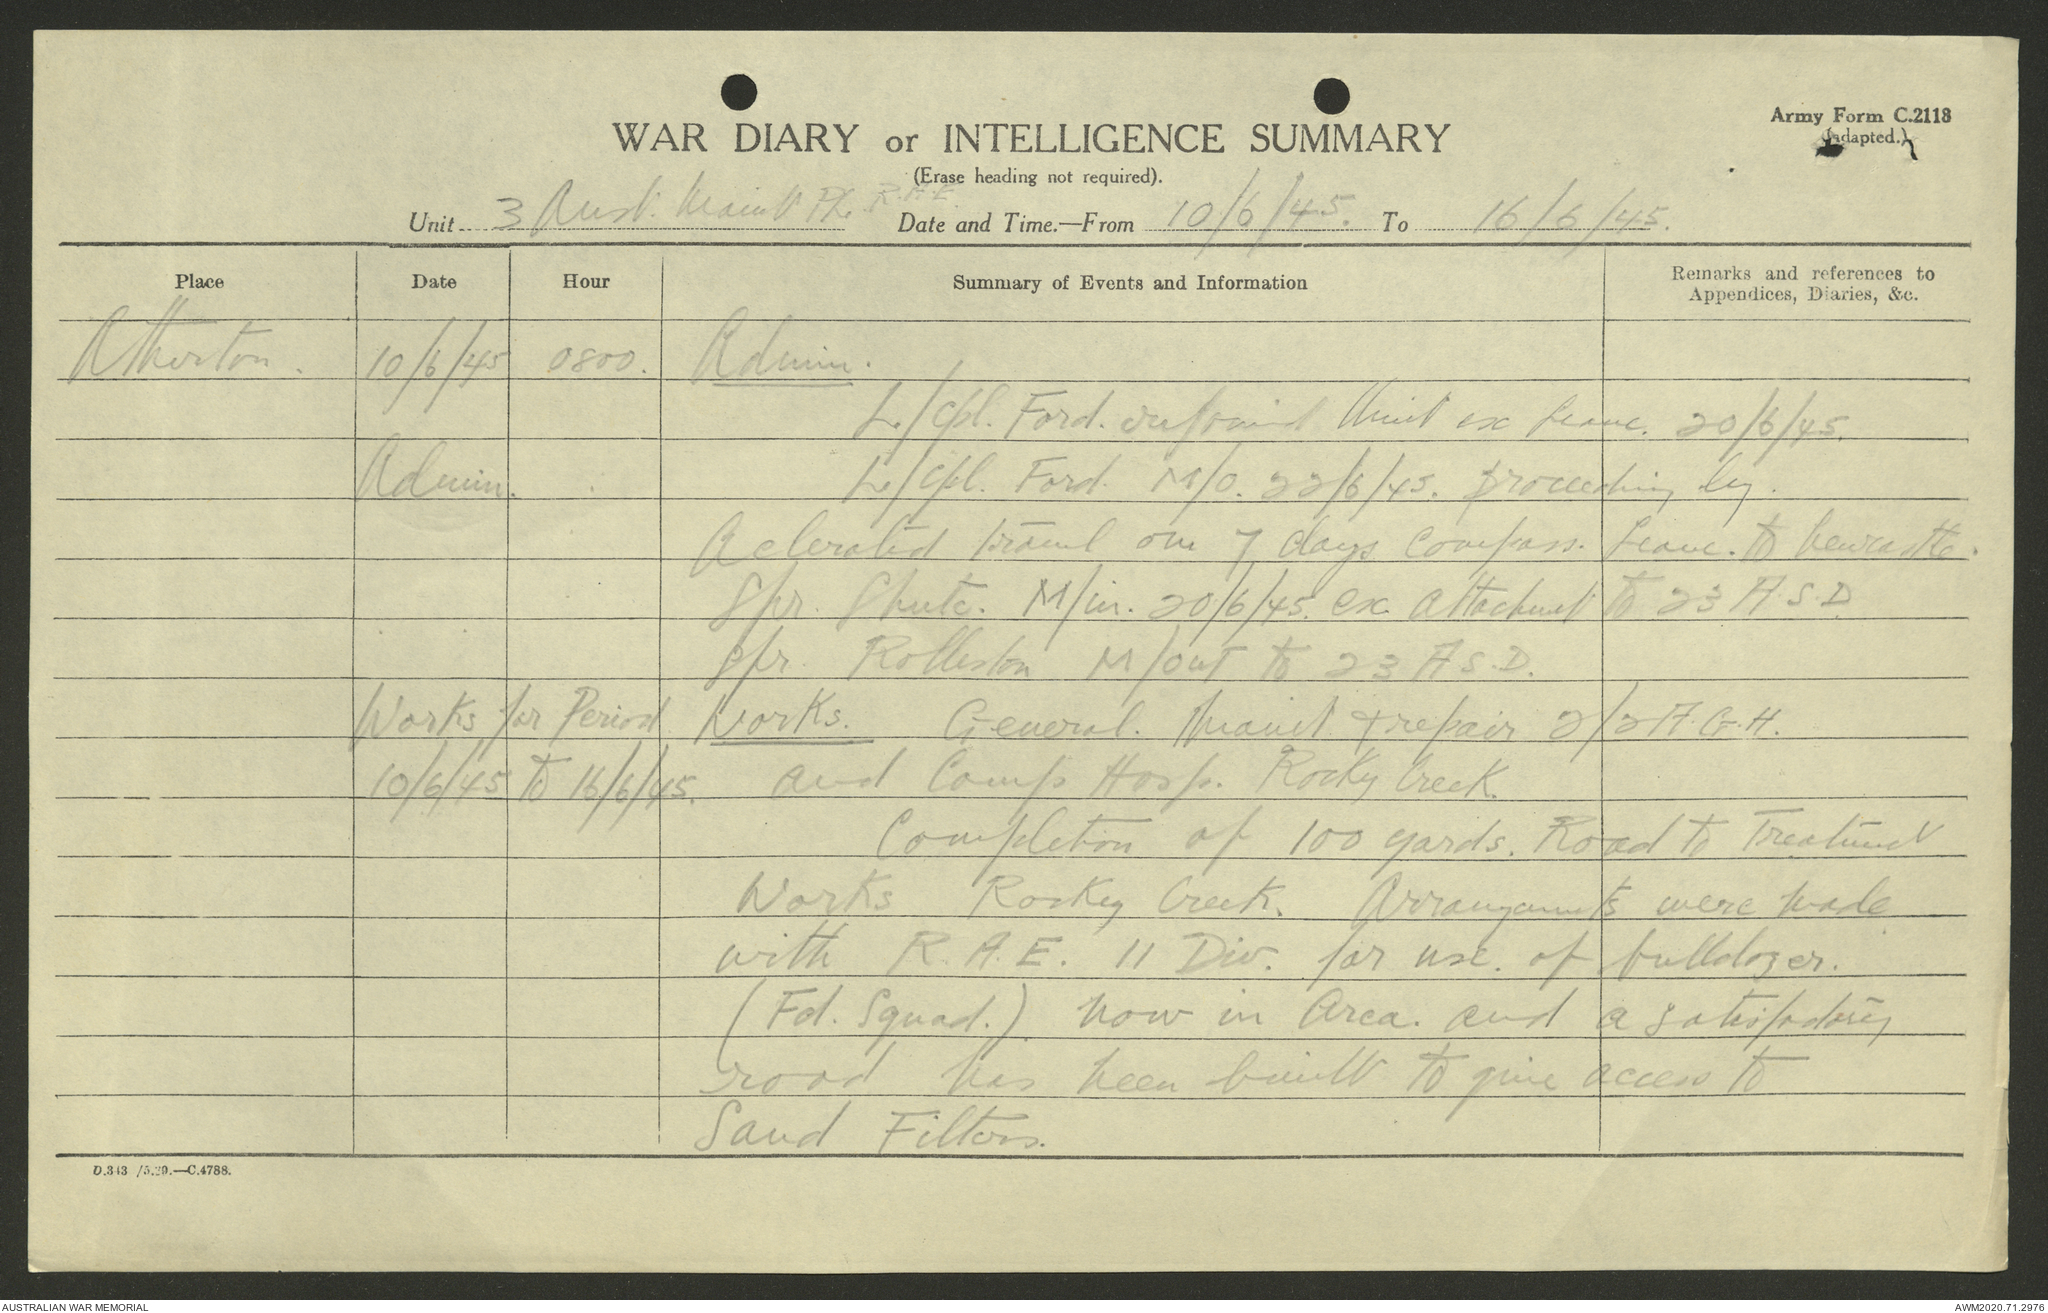 Army Form C.2118
(adapted.)
WAR DIARY or INTELLIGENCE SUMMARY
(Erase heading not required).
Unit 3 Aust. Maint Pl. R.A.E. Date and Time.—From 10/6/45. To 16/6/45.
Place Date Hour Summary of Events and Information Remarks and references to Appendices, Diaries, &c.
Atherton. 10/6/45 0800. Admin.
L/Cpl. Ford. rejoined Unit ex Leave. 20/6/45.
Admin. L/Cpl. Ford. M/O. 22/6/45. proceeding by.
Acelerated travel on 7 days compass. Leave. to Newcastle.
Spr. Shute. M/in. 20/6/45. ex attachment to 23 A.S.D
Spr. Rolleston M/out to 23 A.S.D.
Works for Period Works. General. Maint & repair 2/2 A.G.H.
10/6/45 to 16/6/45. and Camp Hosp. Rocky Creek.
Completion of 100 yards. Road to Treatment
Works Rocky Creek. Arrangements were made
with R.A.E. 11 Div. for use. of bulldozer.
(Fd. Squad.) now in Area. and a satisfactory
road has been built to give access to
Sand Filters.
D.343 /5.20.—C.4788.
AUSTRALIAN WAR MEMORIAL
AWM2020.71.2976